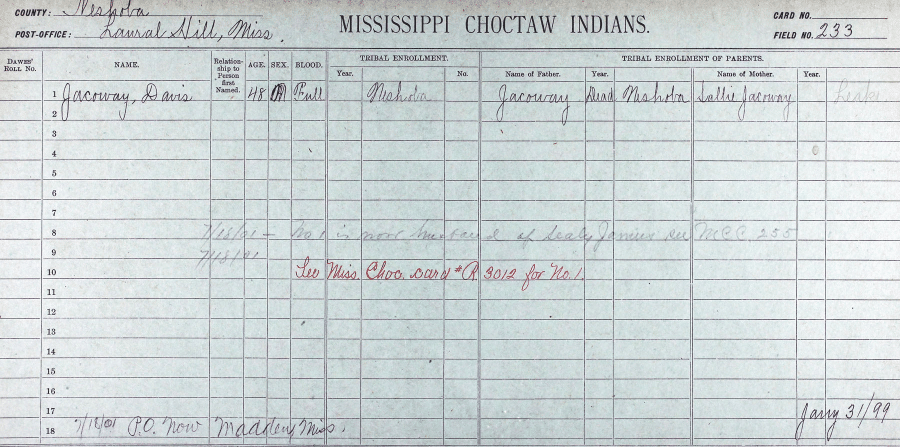 COUNTY: Neshoba
POST-OFFICE: Laural Hill, Miss.
MISSISSIPPI CHOCTAW INDIANS.
CARD NO.
FIELD NO. 233
DAWES' ROLL No. NAME. Relationship to Person first Named. AGE. SEX. BLOOD. TRIBAL ENROLLMENT. TRIBAL ENROLLMENT OF PARENTS.
Year. No. Name of Father. Year. Name of Mother. Year.
1 Jacoway, Davis 48 M Full Neshoba Jacoway Dead Neshoba Sallie Jacoway Leake
2
3
4
5
6
7
8 7/18/01 – No 1 is now husband of Sealy Jimius see M.C.C. 255
9 7/18/01
10 See Miss. Choc. card #R 3012 for No. 1.
11
12
13
14
15
16
17 Jany 31/99
18 7/18/01 P.O. Now Madden, Miss.